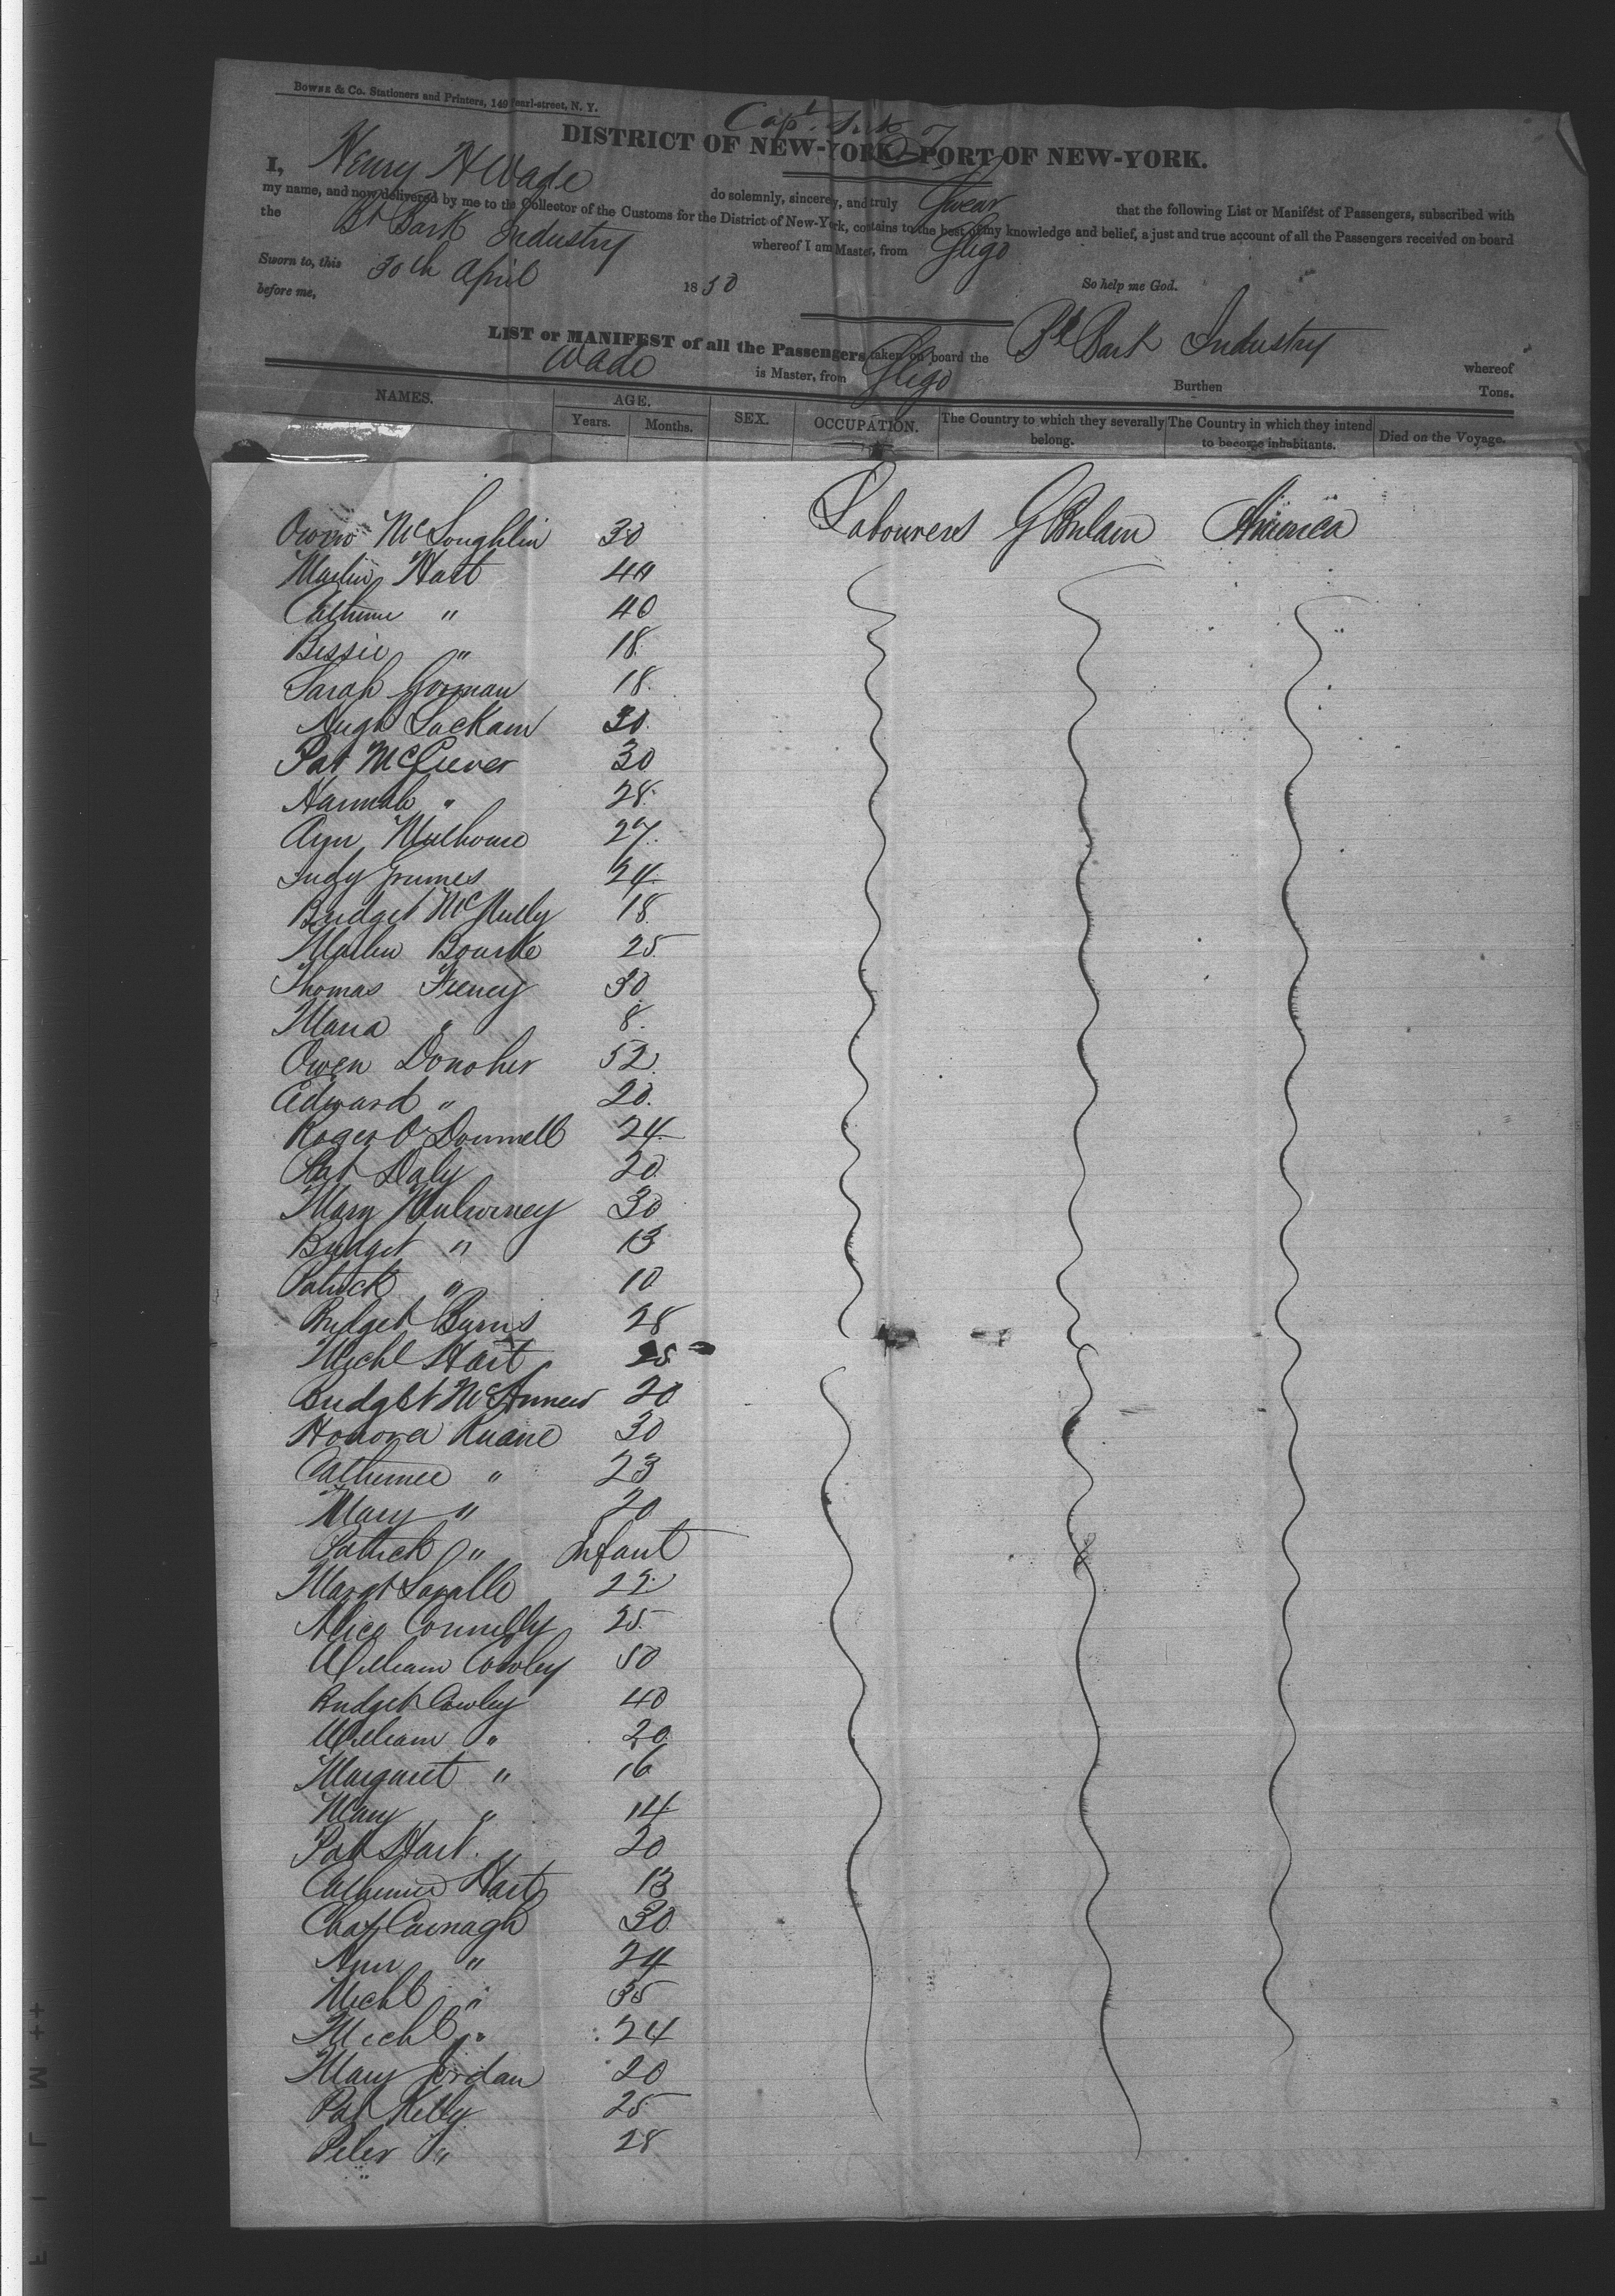 BOWNE & Co. Stationers and Printers, 149 Pearl-street, N. Y.
Capt. Sick
DISTRICT OF NEW-YORK—PORT OF NEW-YORK.
I, Henry H Wade do solemnly, sincerely, and truly Swear that the following List or Manifest of Passengers, subscribed with
my name, and now delivered by me to the Collector of the Customs for the District of New-York, contains to the best of my knowledge and belief, a just and true account of all the Passengers received on board
the Bt Bark Industry whereof I am Master, from Sligo
Sworn to, this 30th April 1850 So help me God.
before me,
LIST or MANIFEST of all the Passengers taken on board the Bt Bark Industry whereof
Wade is Master, from Sligo Burthen Tons.
NAMES. AGE. SEX. OCCUPATION. The Country to which they severally belong. The Country in which they intend to become inhabitants. Died on the Voyage.
Years. Months.
Owen McLoughlin 30 Labourers G Britain America
Martin Hart 44
Catherine " 40
Bessie " 18
Sarah Gorman 18
Hugh Lackam 30
Pat McGiever 30
Hannah " 28
Ann 27
Judy Grimes 24
Bridget McNully 18
Martin Bourke 25
Thomas Feeney 30
Maria " 8
Owen Donoher 52
Edward " 20
Roger O'Donnell 24
Pat Daly 20
Mary Mulviney 30
Bridget " 13
Patrick " 10
Bridget Burns 28
Michl Hart 25
Bridget McAnnew 20
Honora Ruane 30
Catherine " 23
Mary " 20
Patrick " Infant
Margt Lavalle 22
Alice Connelly 25
William Cowley 50
Bridget Cowley 40
William " 20
Margaret " 16
Mary " 14
Pat Hart 20
Catherine Hart 13
Chas Cavnagh 30
Ann " 24
Michl " 35
Michl " 24
Mary Jordan 20
Pat Kelly 25
Peter " 28